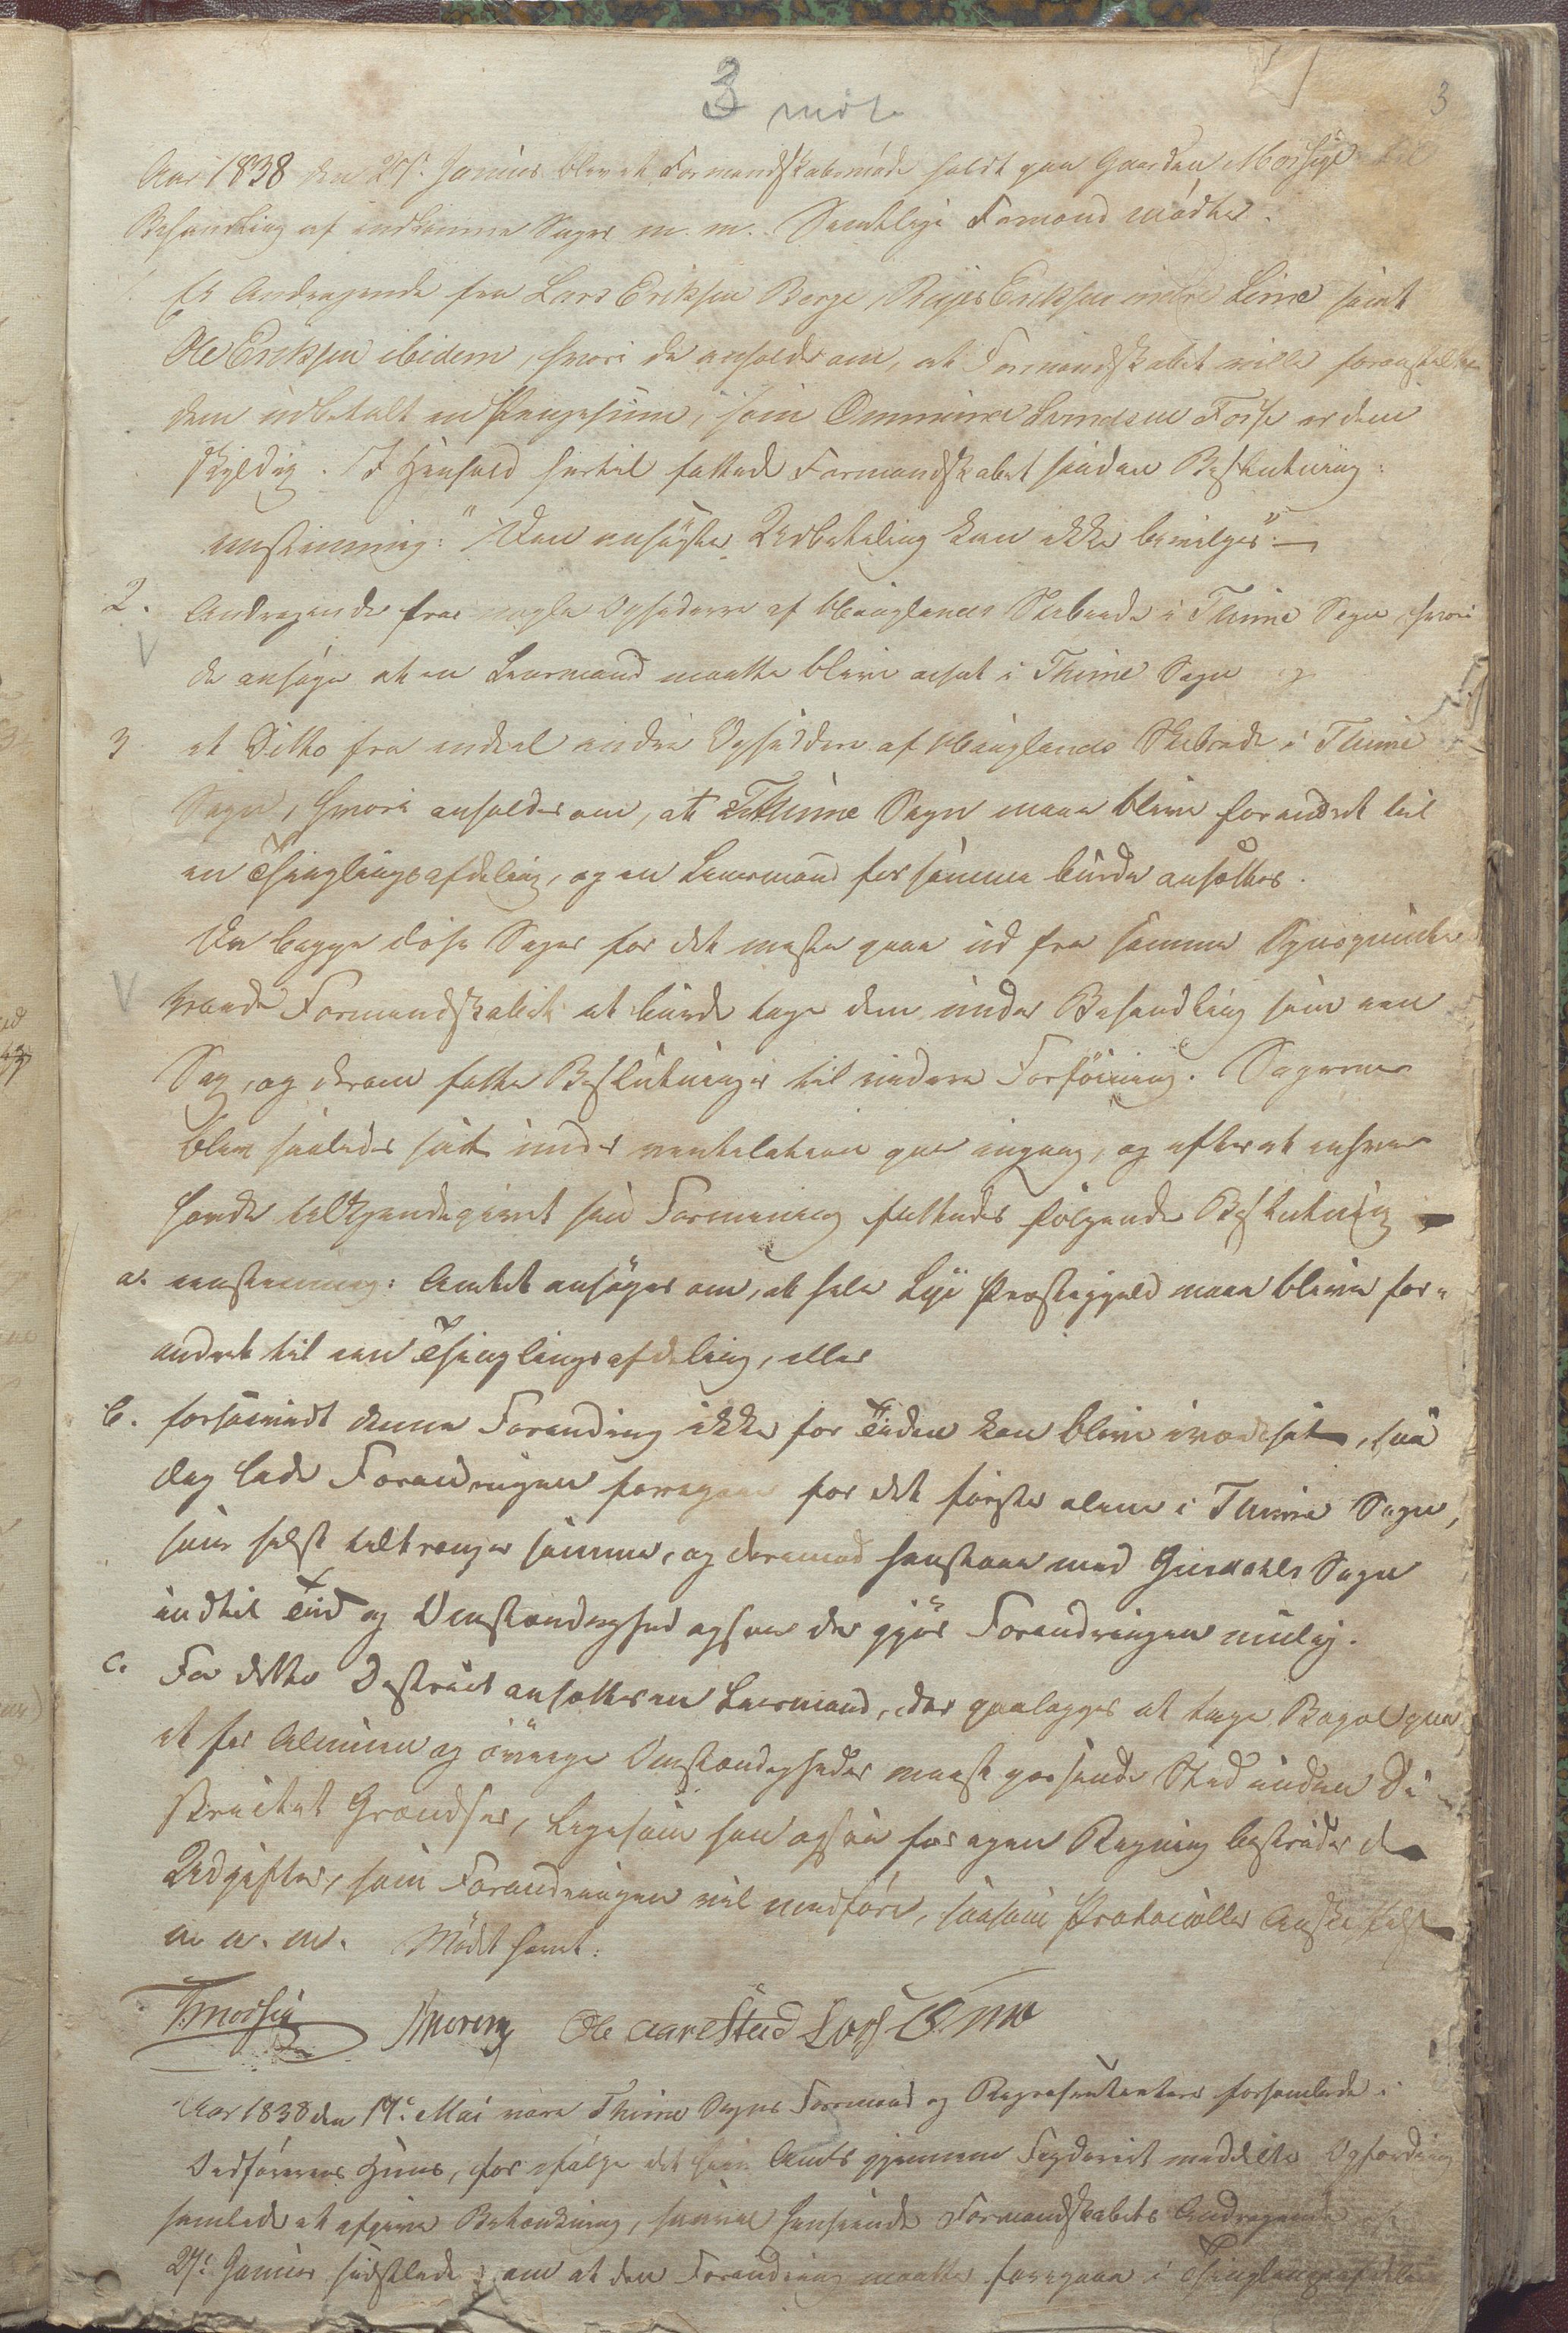 3 møte
3
Aar 1838 den 27de Januar blev et Formandskabsmøde holdt paa Gaarden Mossige til
Behandling af indkomne Sager m. m. Samtlige Formænd mødte.
Et Andragende fra Lars Eriksen Berge, Eriksen indre Lime samt
Ole Eriksen ibidem, hvori de anholder om, at Formandskabet ville foranstalte
dem udbetalt en Pengesum, som Ommund Svendsen Fosse er dem
skyldig. I Henhold hertil fattede Formandskabet saadan Beslutning:
enstemmig: "Den ansøgte Udbetaling kan ikke bevilges".
2. Andragende fra nogle Opsiddere af Houglands Skibrede i Thime Sogn, hvori
de ansøge at en Lensmand maatte blive ansat i Thime Sogn og
3 et Ditto fra endeel andre Opsiddere af Houglands Skibrede i Thime
Sogn, hvori anholdes om, at Thime Sogn maa blive forandret til
en Thinglaugsafdeling, og en Lensmand for samme burde ansættes.
Da begge disse Sager for det meste gaae ud fra samme Synspunkt
troede Formandskabet at burde tage dem under Behandling som een
Sag, og derom fatte Beslutninger til videre Forføining. Sagerne
blev saaledes sat under ventelation paa engang, og efterat enhver
havde tilkjendegivet sin Formening fattedes følgende Beslutning
a. eenstemmig: Amtet ansøges om, at hele Lye Præstegjæld maa blive for-
andret til een Thinglaugsafdeling, eller
b. forsaavidt denne Forandring ikke for Tiden kan blive iværksat, saa
dog lade Forandringen foregaae for det første alene i Thime Sogn,
som helst tiltrænger samme, og dermed henstaae med Gjesdahls Sogn
indtil Tid og Omstændighed ogsaa der gjør Forandringen mulig.
c. For dette District ansættes en Lensmand, der paalægges at tage Bopæl paa
et for Almuen og øvrige Omstændigheder meest passende Sted inden Di-
strictet Grændser, ligesom han ogsaa for egen Regning bestrider de
Udgifter, som Forandringen vil medføre, saasom Protocoller Anskaffelse
m. m. Mødet hævet.
Ole Aarestad Lars
Aar 1838 den 17de Mai vare Thime Sogns Formænd og Repræsentantere forsamlede i
Ordførerens Huus, for ifølge det høie Amts gjennem Fogderiet meddelte Opfordring
samlede at afgive Betænkning, saavel henseende Formandskabets Andragende af
27de Januar sidstleden, om at den Forandring maatte foregaae i Thinglaugsafdeling